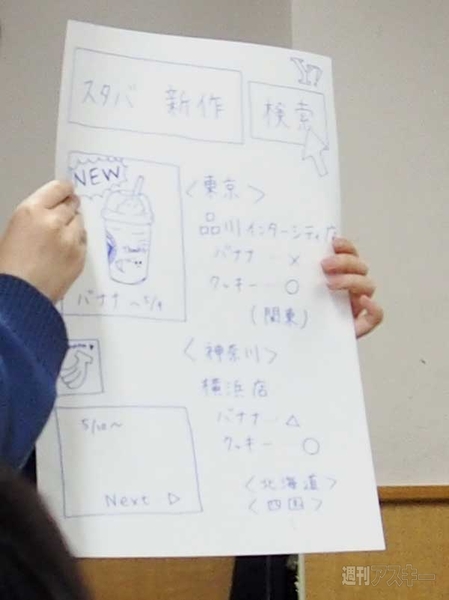 Y!
スタバ 新作
検索
NEW
Thanks
バナナ 〜5/9
5/10〜
Next ▷
〈東京〉
品川インターシティ店
バナナ … ×
クッキー … ○
(関東)
〈神奈川〉
横浜店
バナナ … △
クッキー ○
〈北海道〉
〈四国〉
週刊アスキー